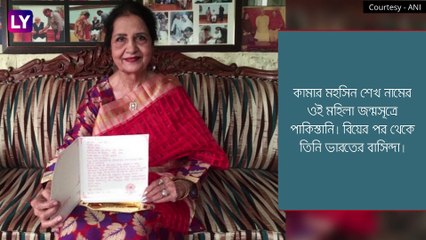 LY
Courtesy - ANI
কামার মহসিন শেখ নামের
ওই মহিলা জন্মসূত্রে
পাকিস্তানি। বিয়ের পর থেকে
তিনি ভারতের বাসিন্দা।